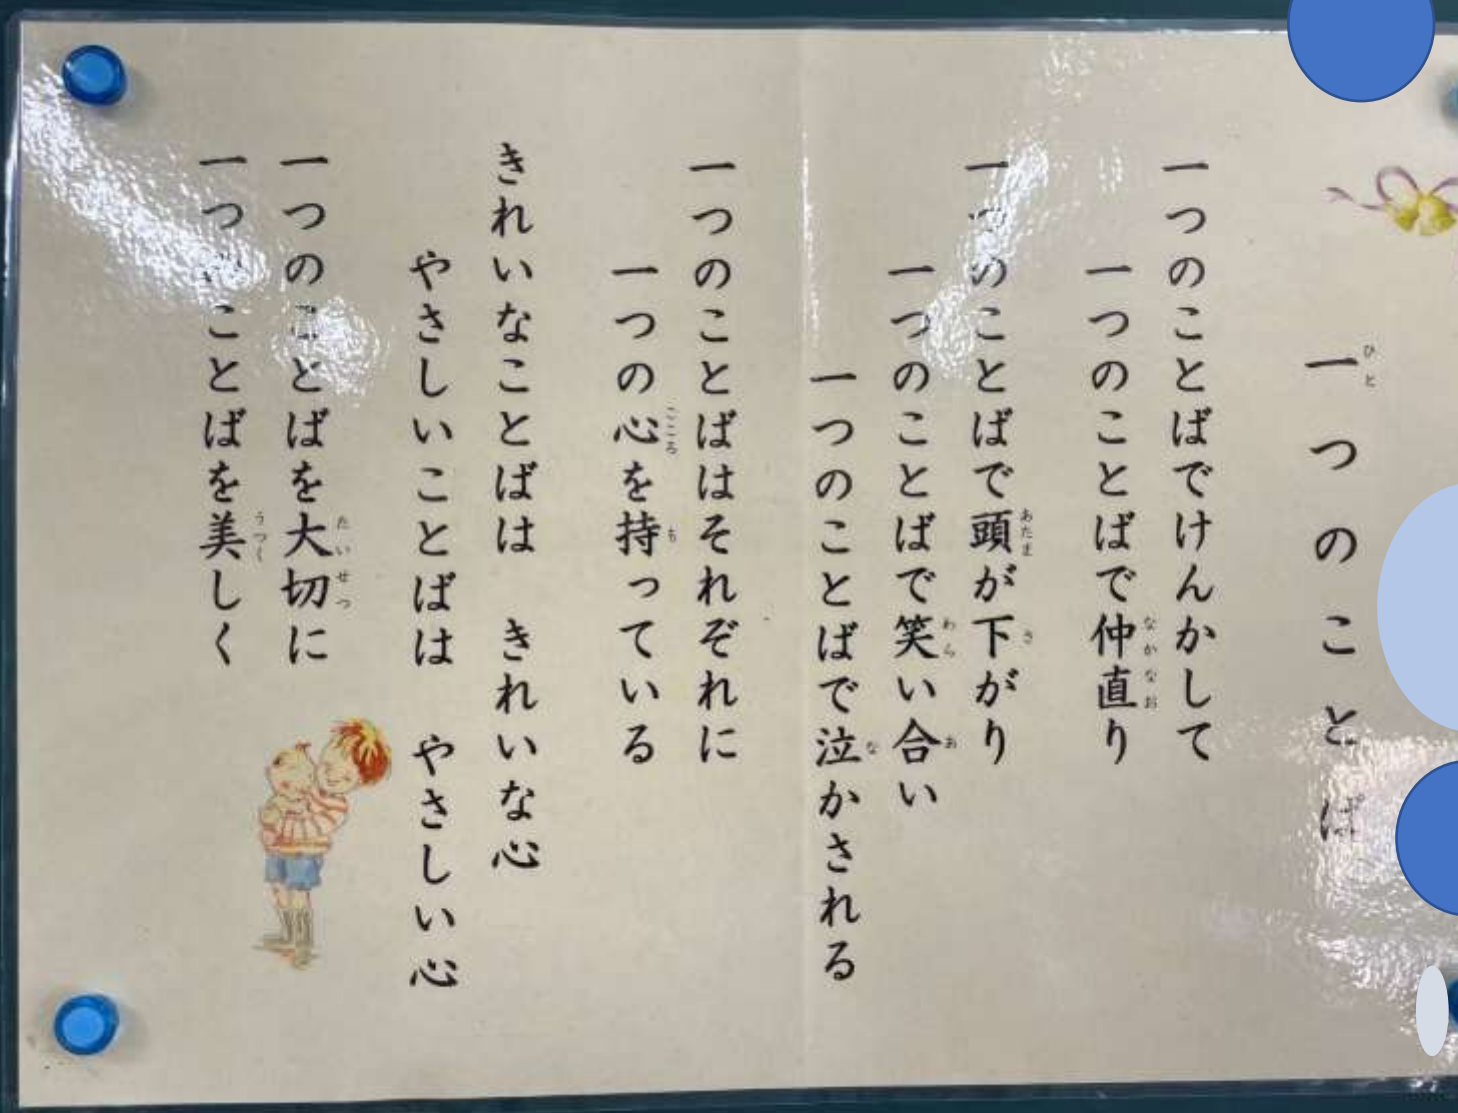 一つのことば
一つのことばでけんかして
一つのことばで仲直り
一つのことばで頭が下がり
一つのことばで笑い合い
一つのことばで泣かされる
一つのことばはそれぞれに
一つの心を持っている
きれいなことばは　きれいな心
やさしいことばは　やさしい心
一つのことばを大切に
一つのことばを美しく